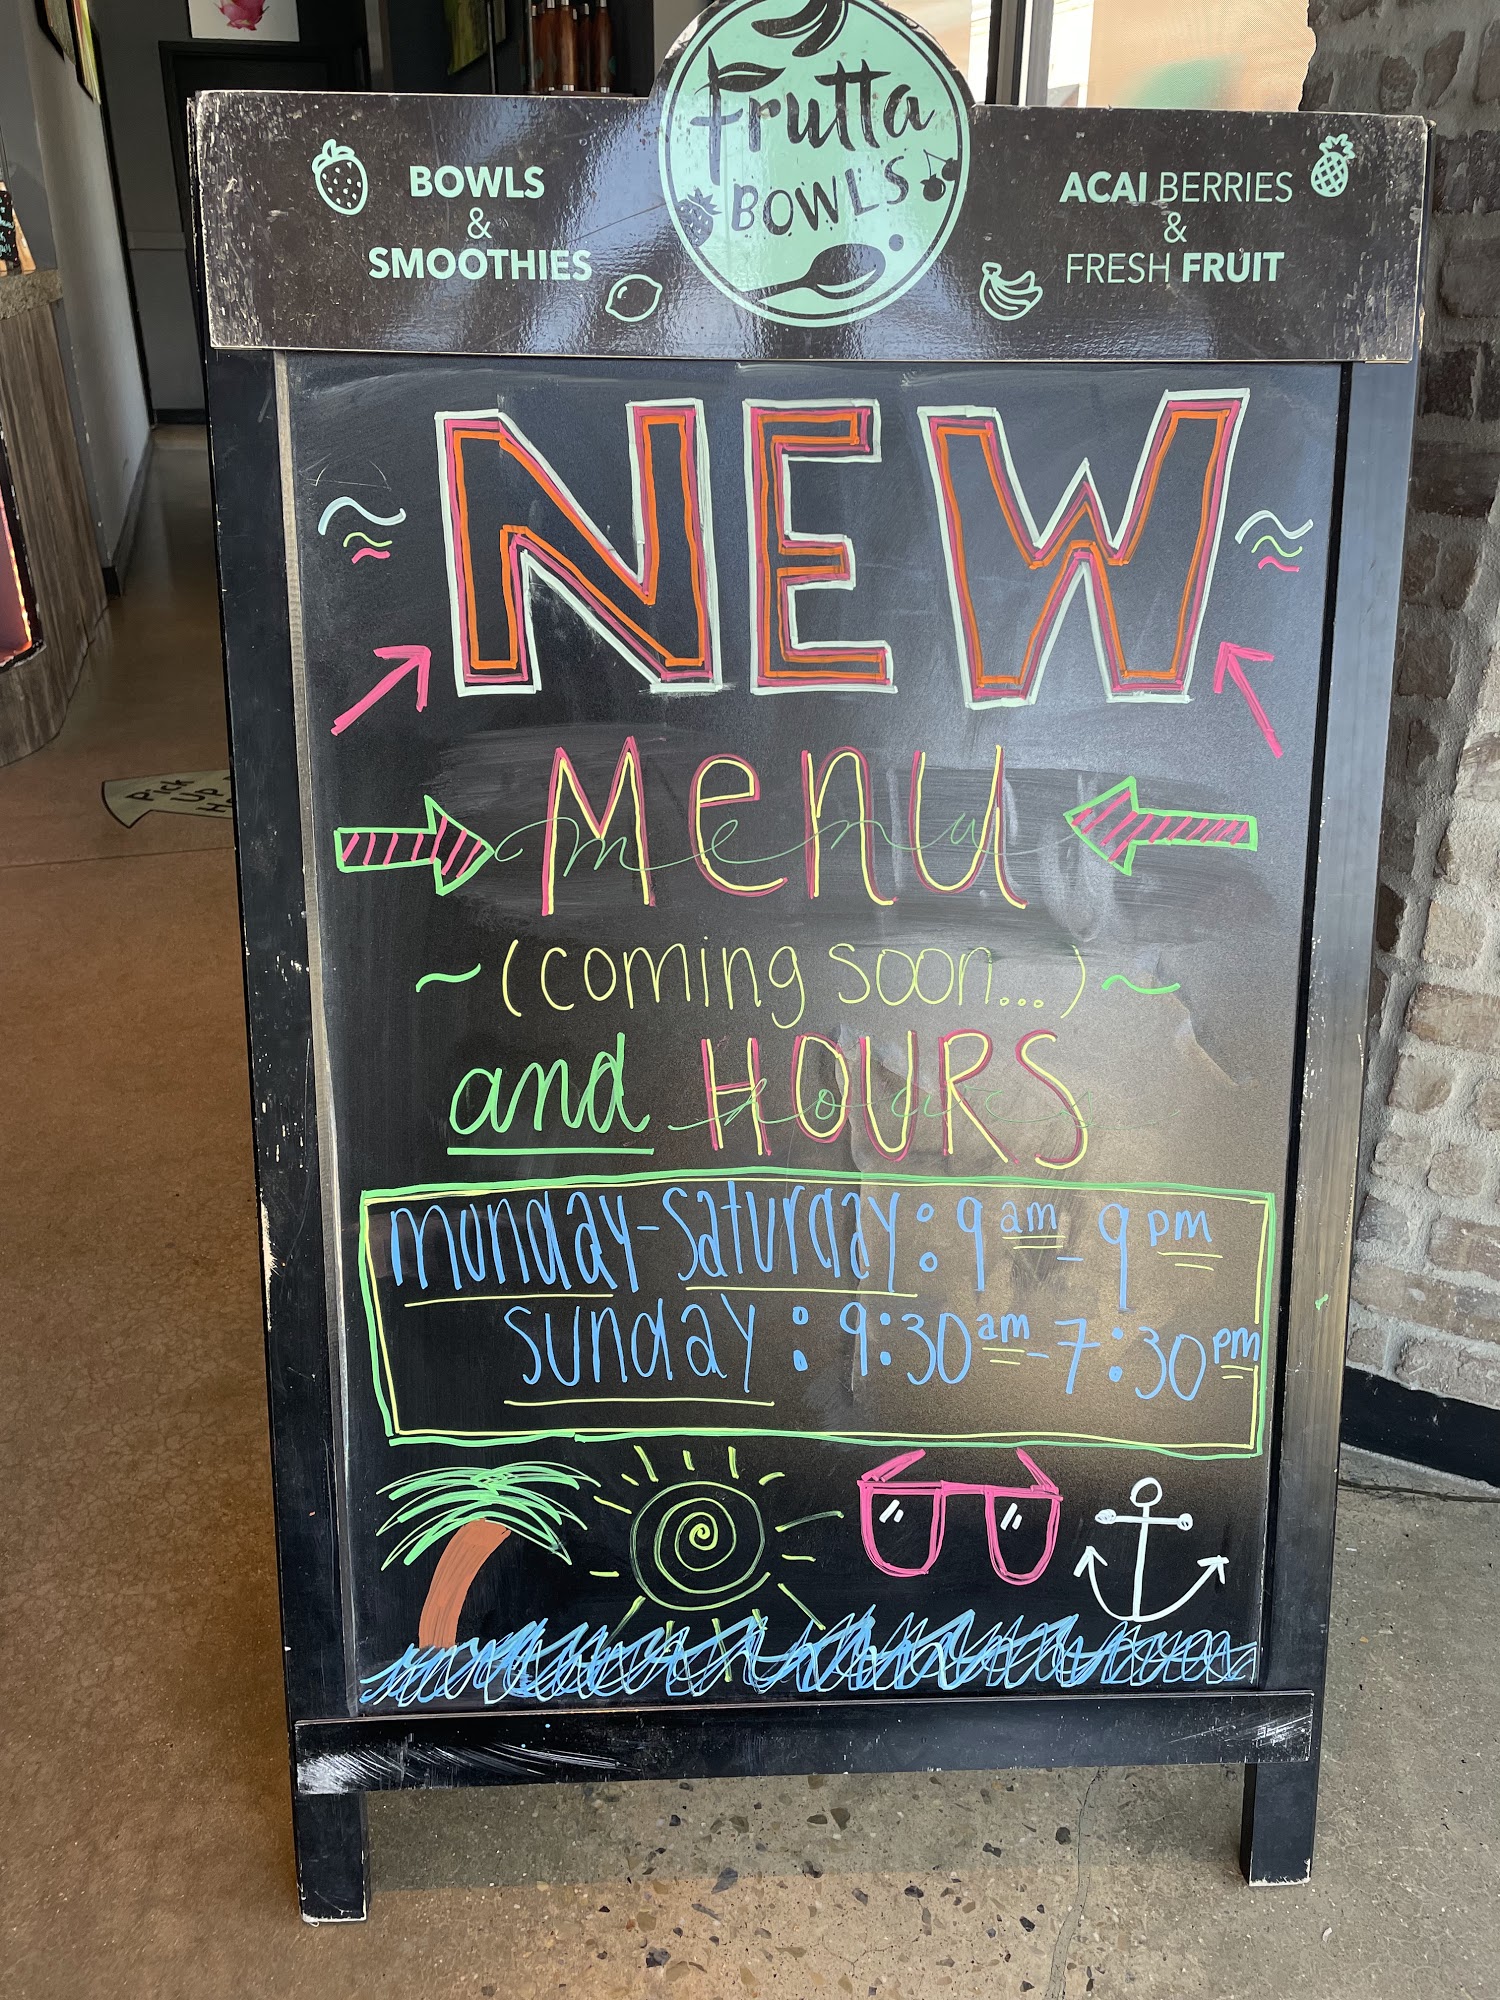 Frutta
BOWLS
BOWLS
&
SMOOTHIES
ACAI BERRIES
&
FRESH FRUIT
NEW
Menu
menu
~(coming soon...)~
and HOURS
hours
monday-saturday: 9 am - 9 pm
sunday: 9:30 am - 7:30 pm
Pick
Up